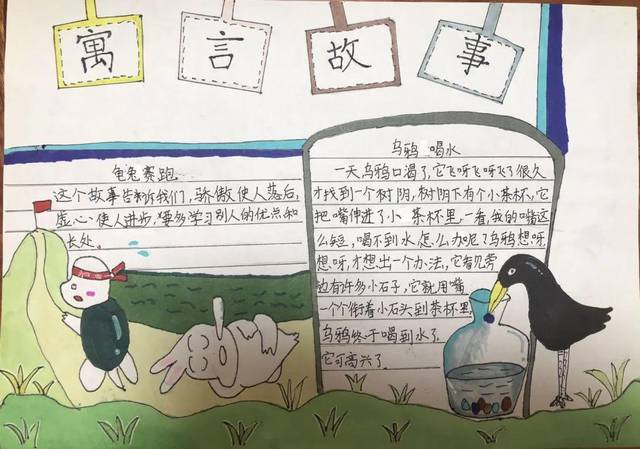 寓言故事
龟兔赛跑.
这个故事告诉我们,骄傲使人落后,
虚心使人进步.要多学习别人的优点和
长处.
乌鸦 喝水
一天,乌鸦口渴了,它飞呀飞呀飞了很久
才找到一个树阴,树阴下有个小茶杯,它
把嘴伸进了小茶杯里,一看,我的嘴这
么短,喝不到水怎么办呢?乌鸦想呀
想呀,才想出一个办法,它看见旁
边有许多小石子,它就用嘴
一个个衔着小石头到茶杯里
乌鸦终于喝到水了.
它可高兴了.